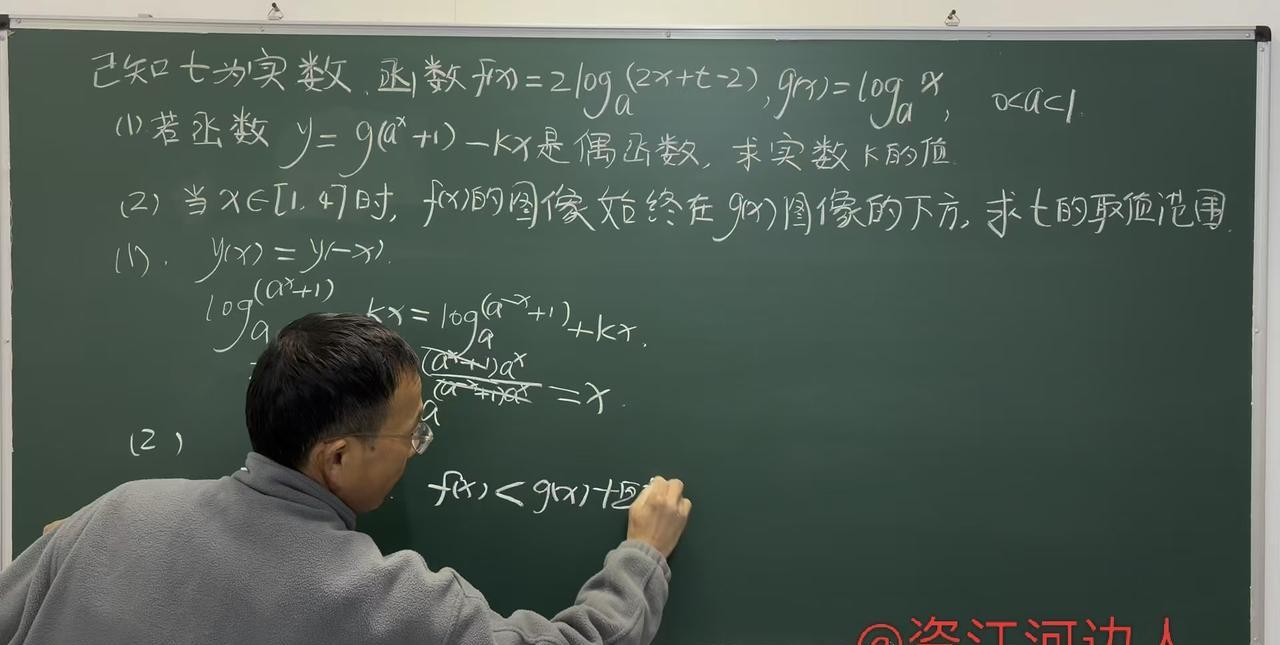 已知t为实数，函数f(x)=2log_a(2x+t-2)，g(x)=log_a x， 0<a<1.
(1)若函数 y=g(a^x+1)-kx是偶函数，求实数k的值.
(2)当x∈[1,4]时，f(x)的图像始终在g(x)图像的下方，求t的取值范围.
(1). y(x)=y(-x).
log_a(a^x+1) kx=log_a(a^-x+1)+kx.
a (a^x+1)a^x/(a^-x+1)a^x =x.
(2)
f(x)<g(x)恒
@资江河边人